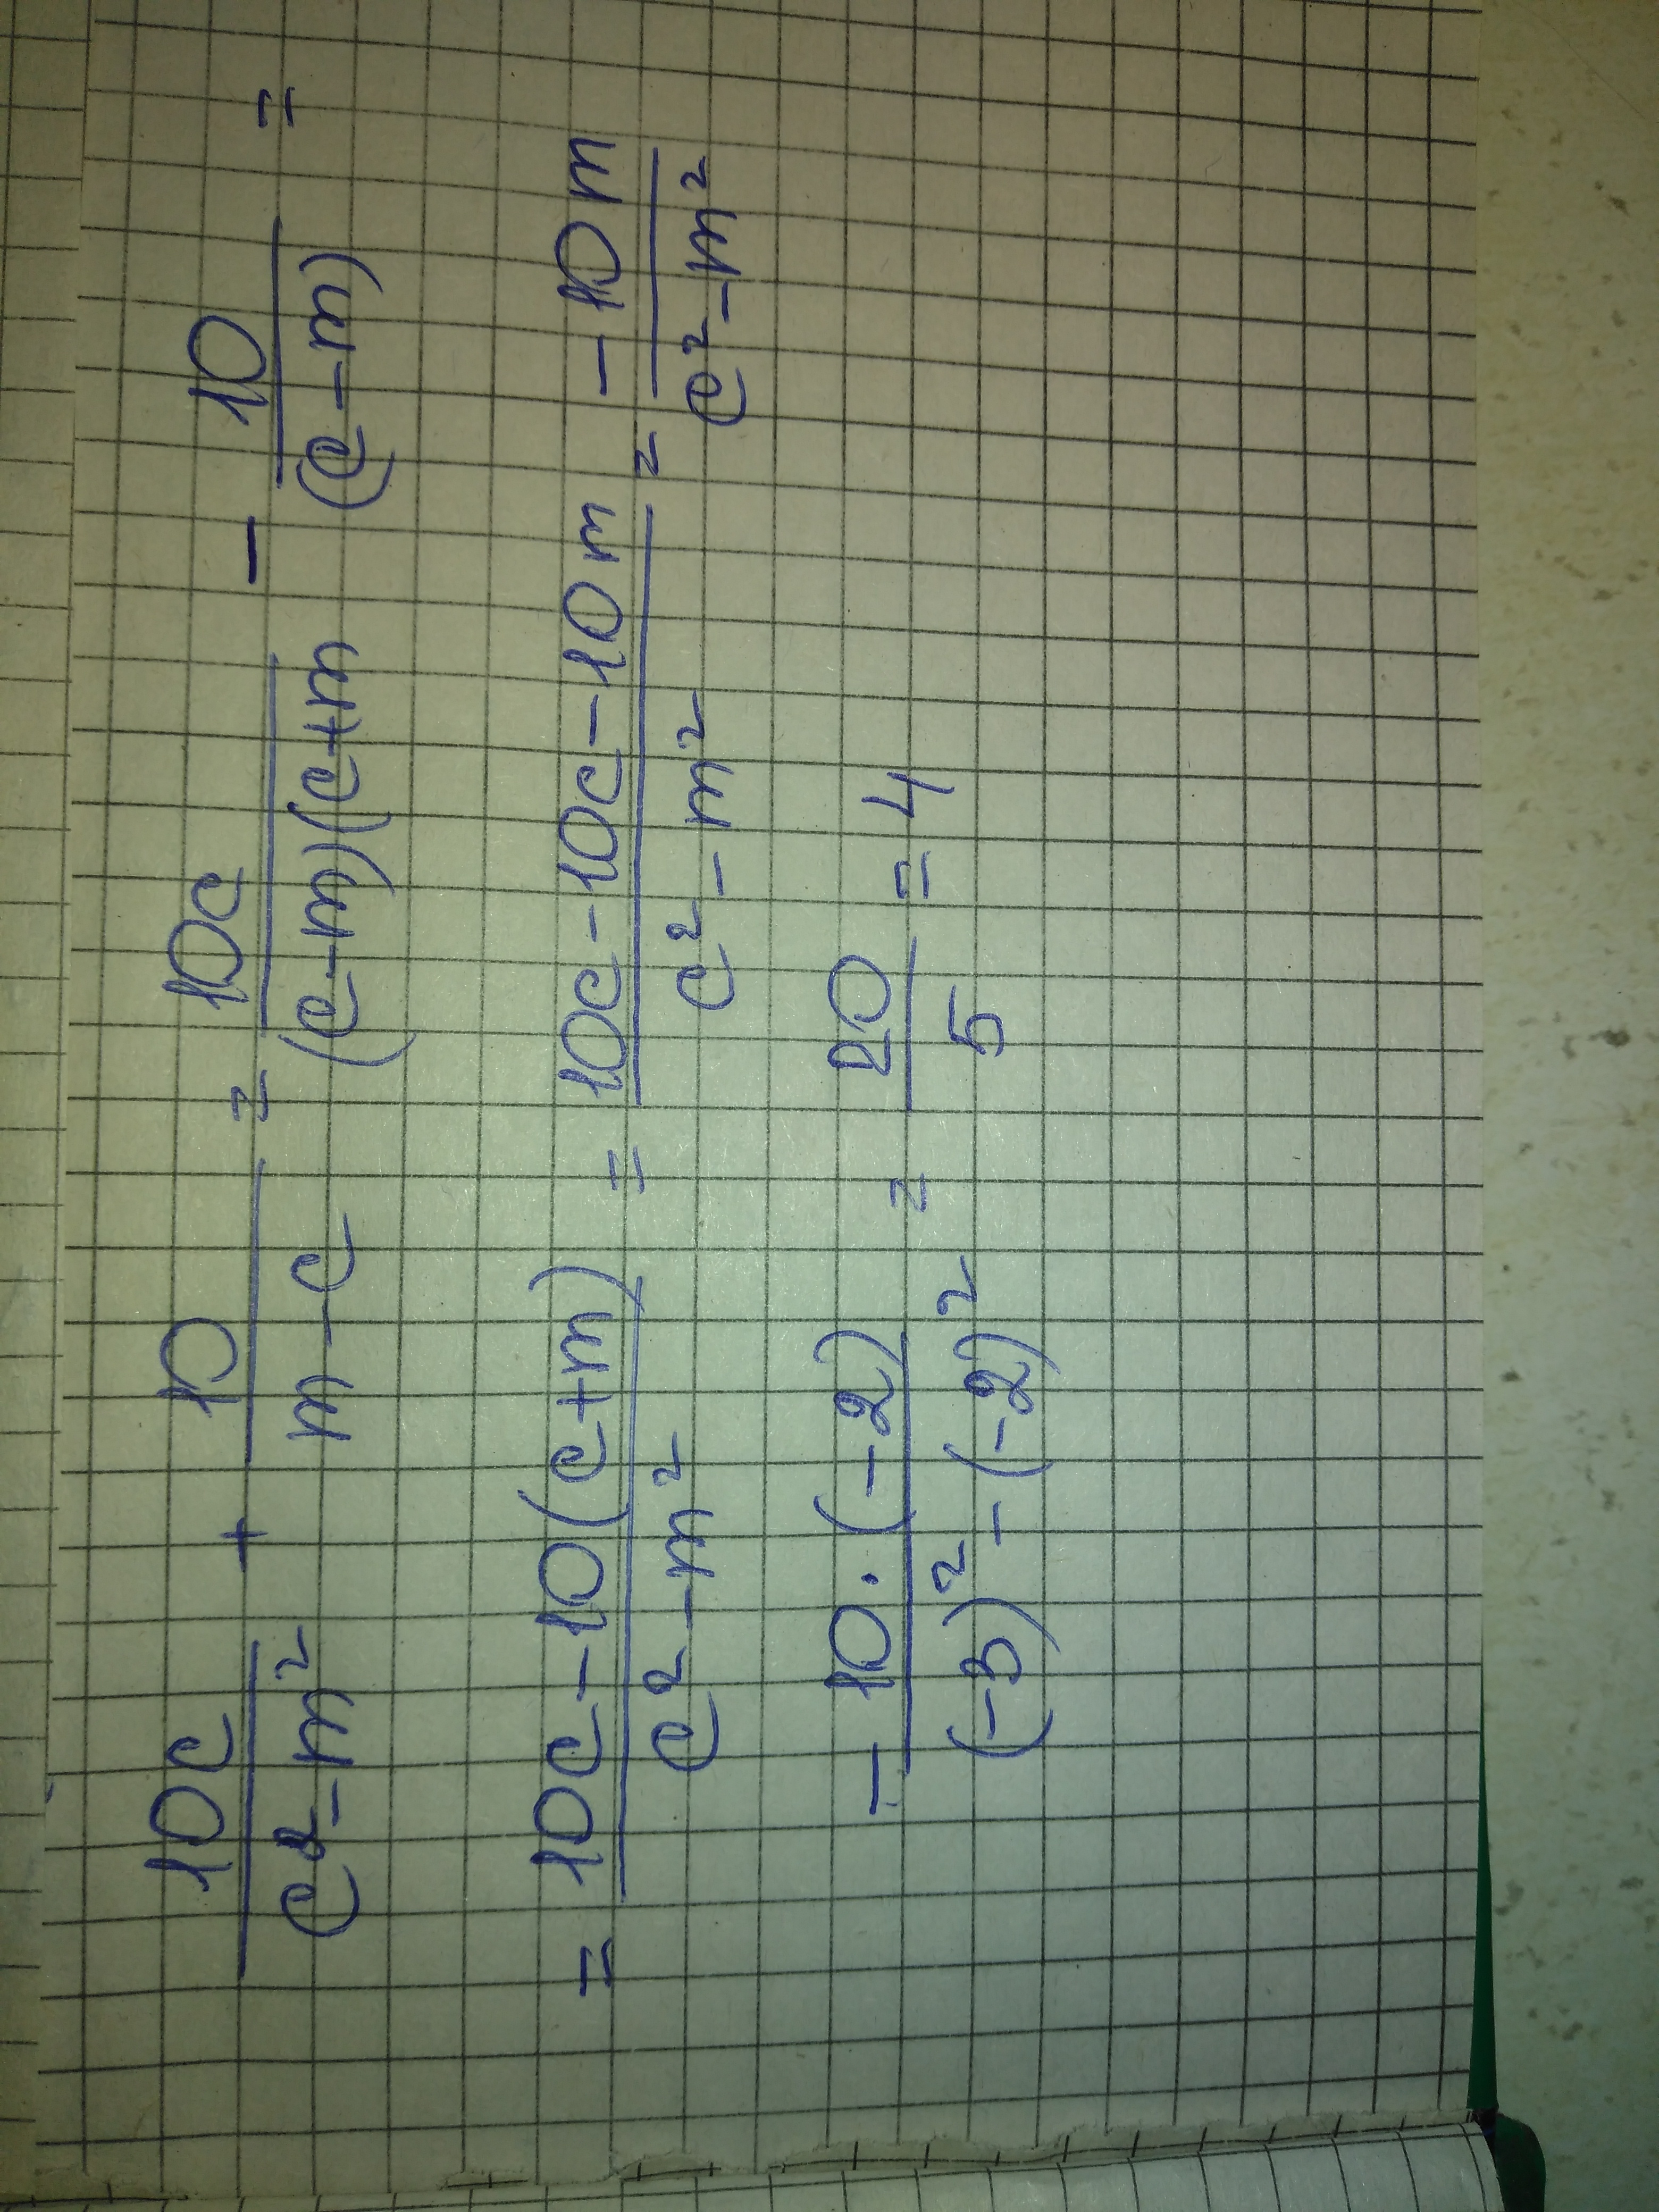 10c/(c²-m²) + 10/(m-c) = 10c/((c-m)(c+m) - 10/(c-m) =
= (10c-10(c+m))/(c²-m²) = (10c-10c-10m)/(c²-m²) = -10m/(c²-m²)
- 10·(-2)/((-3)²-(-2)²) = 20/5 = 4